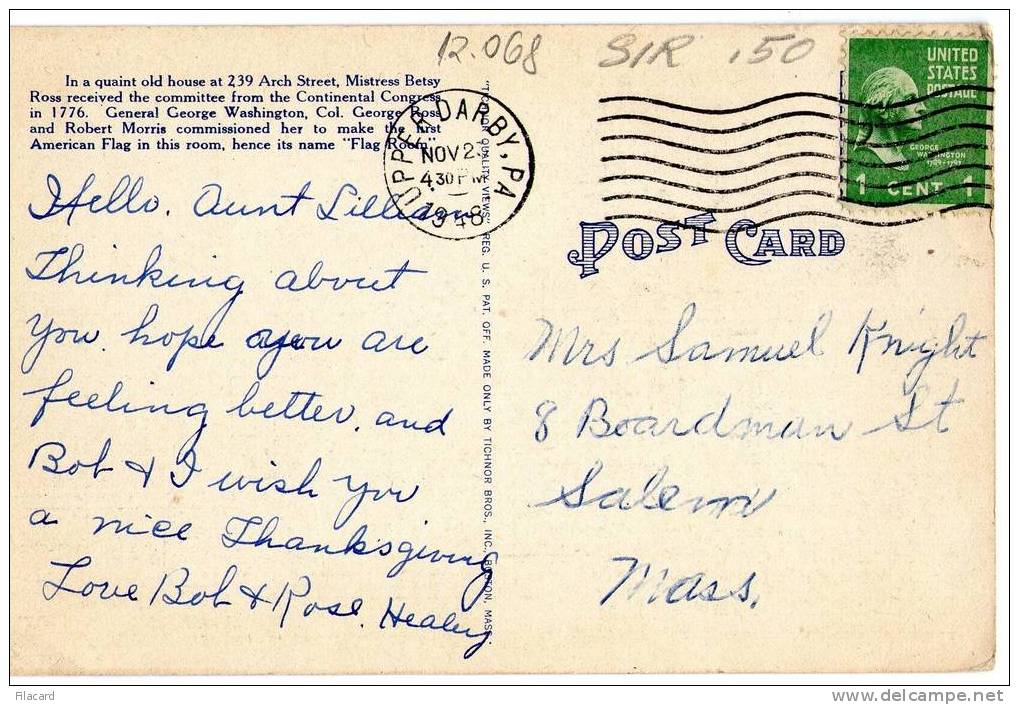 12.068 SIR .50
In a quaint old house at 239 Arch Street, Mistress Betsy
Ross received the committee from the Continental Congress
in 1776. General George Washington, Col. George Ross
and Robert Morris commissioned her to make the first
American Flag in this room, hence its name "Flag Room".
UPPER DARBY, PA
NOV 2
4 30 PM
1948
UNITED
STATES
POSTAGE
GEORGE
WASHINGTON
1789-1797
1 CENT 1
POST CARD
Hello Aunt Lillian
Thinking about
you. hope you are
feeling better, and
Bob & I wish you
a nice Thanksgiving
Love Bob & Rose. Healey
"TICHNOR QUALITY VIEWS" REG. U. S. PAT. OFF. MADE ONLY BY TICHNOR BROS., INC., BOSTON, MASS.
Mrs Samuel Knight
8 Boardman St
Salem
Mass.
Filacard
www.delcampe.net